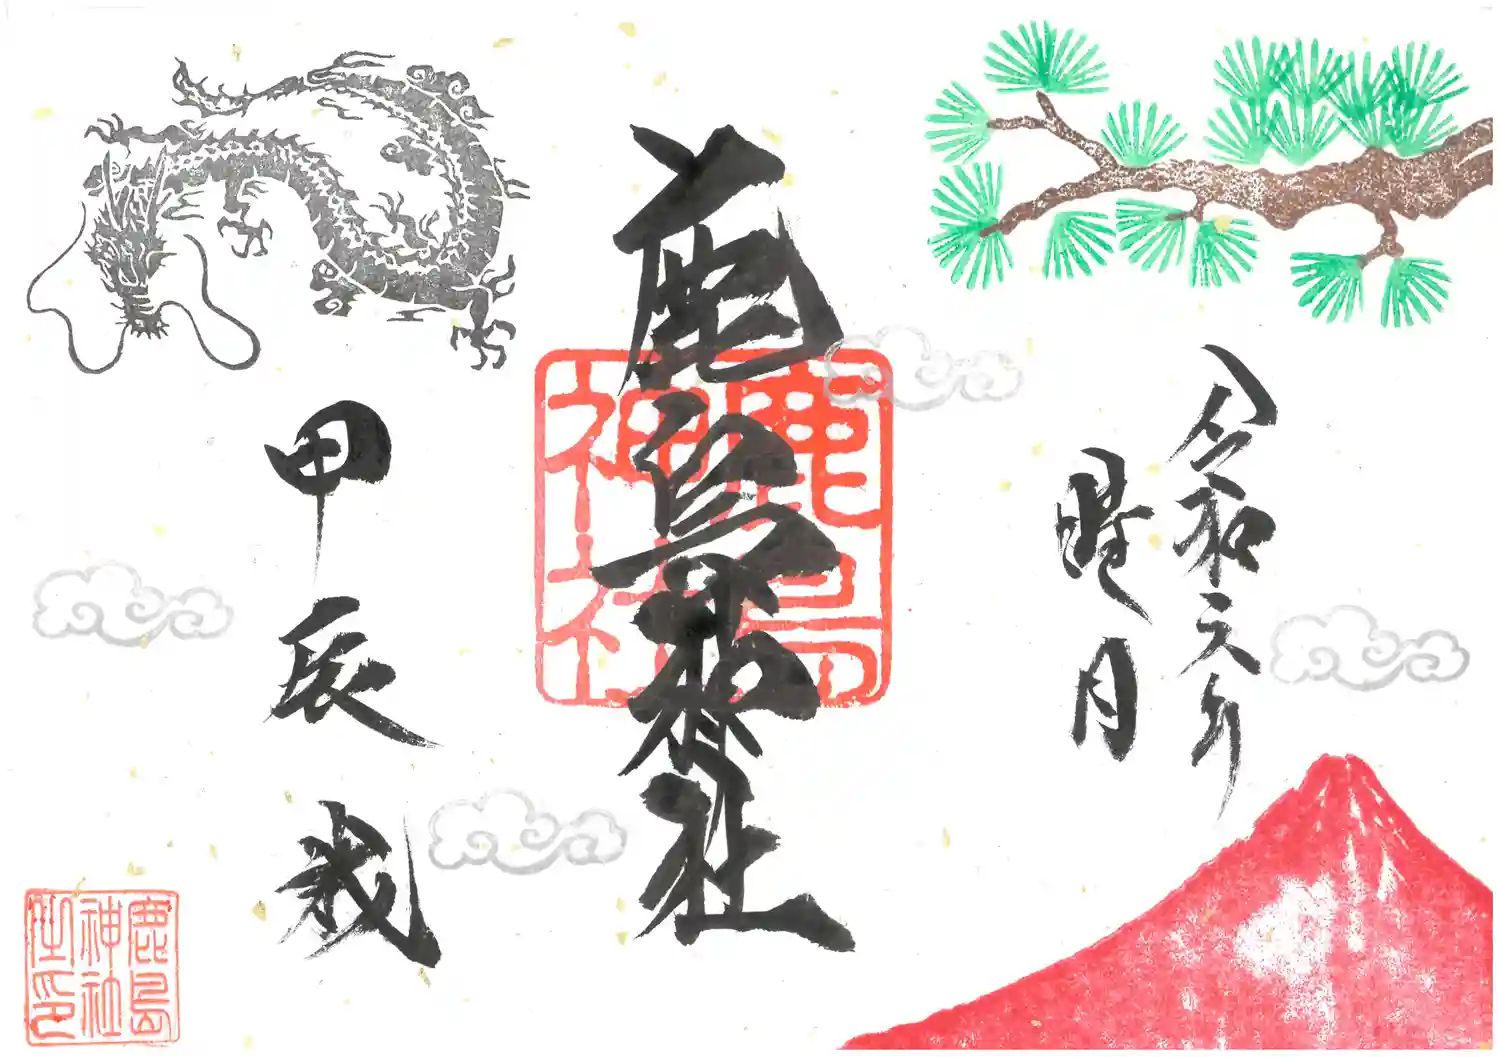 令和六年
睦月
鹿島神社
鹿島
神社
甲辰歳
鹿島
神社
之印